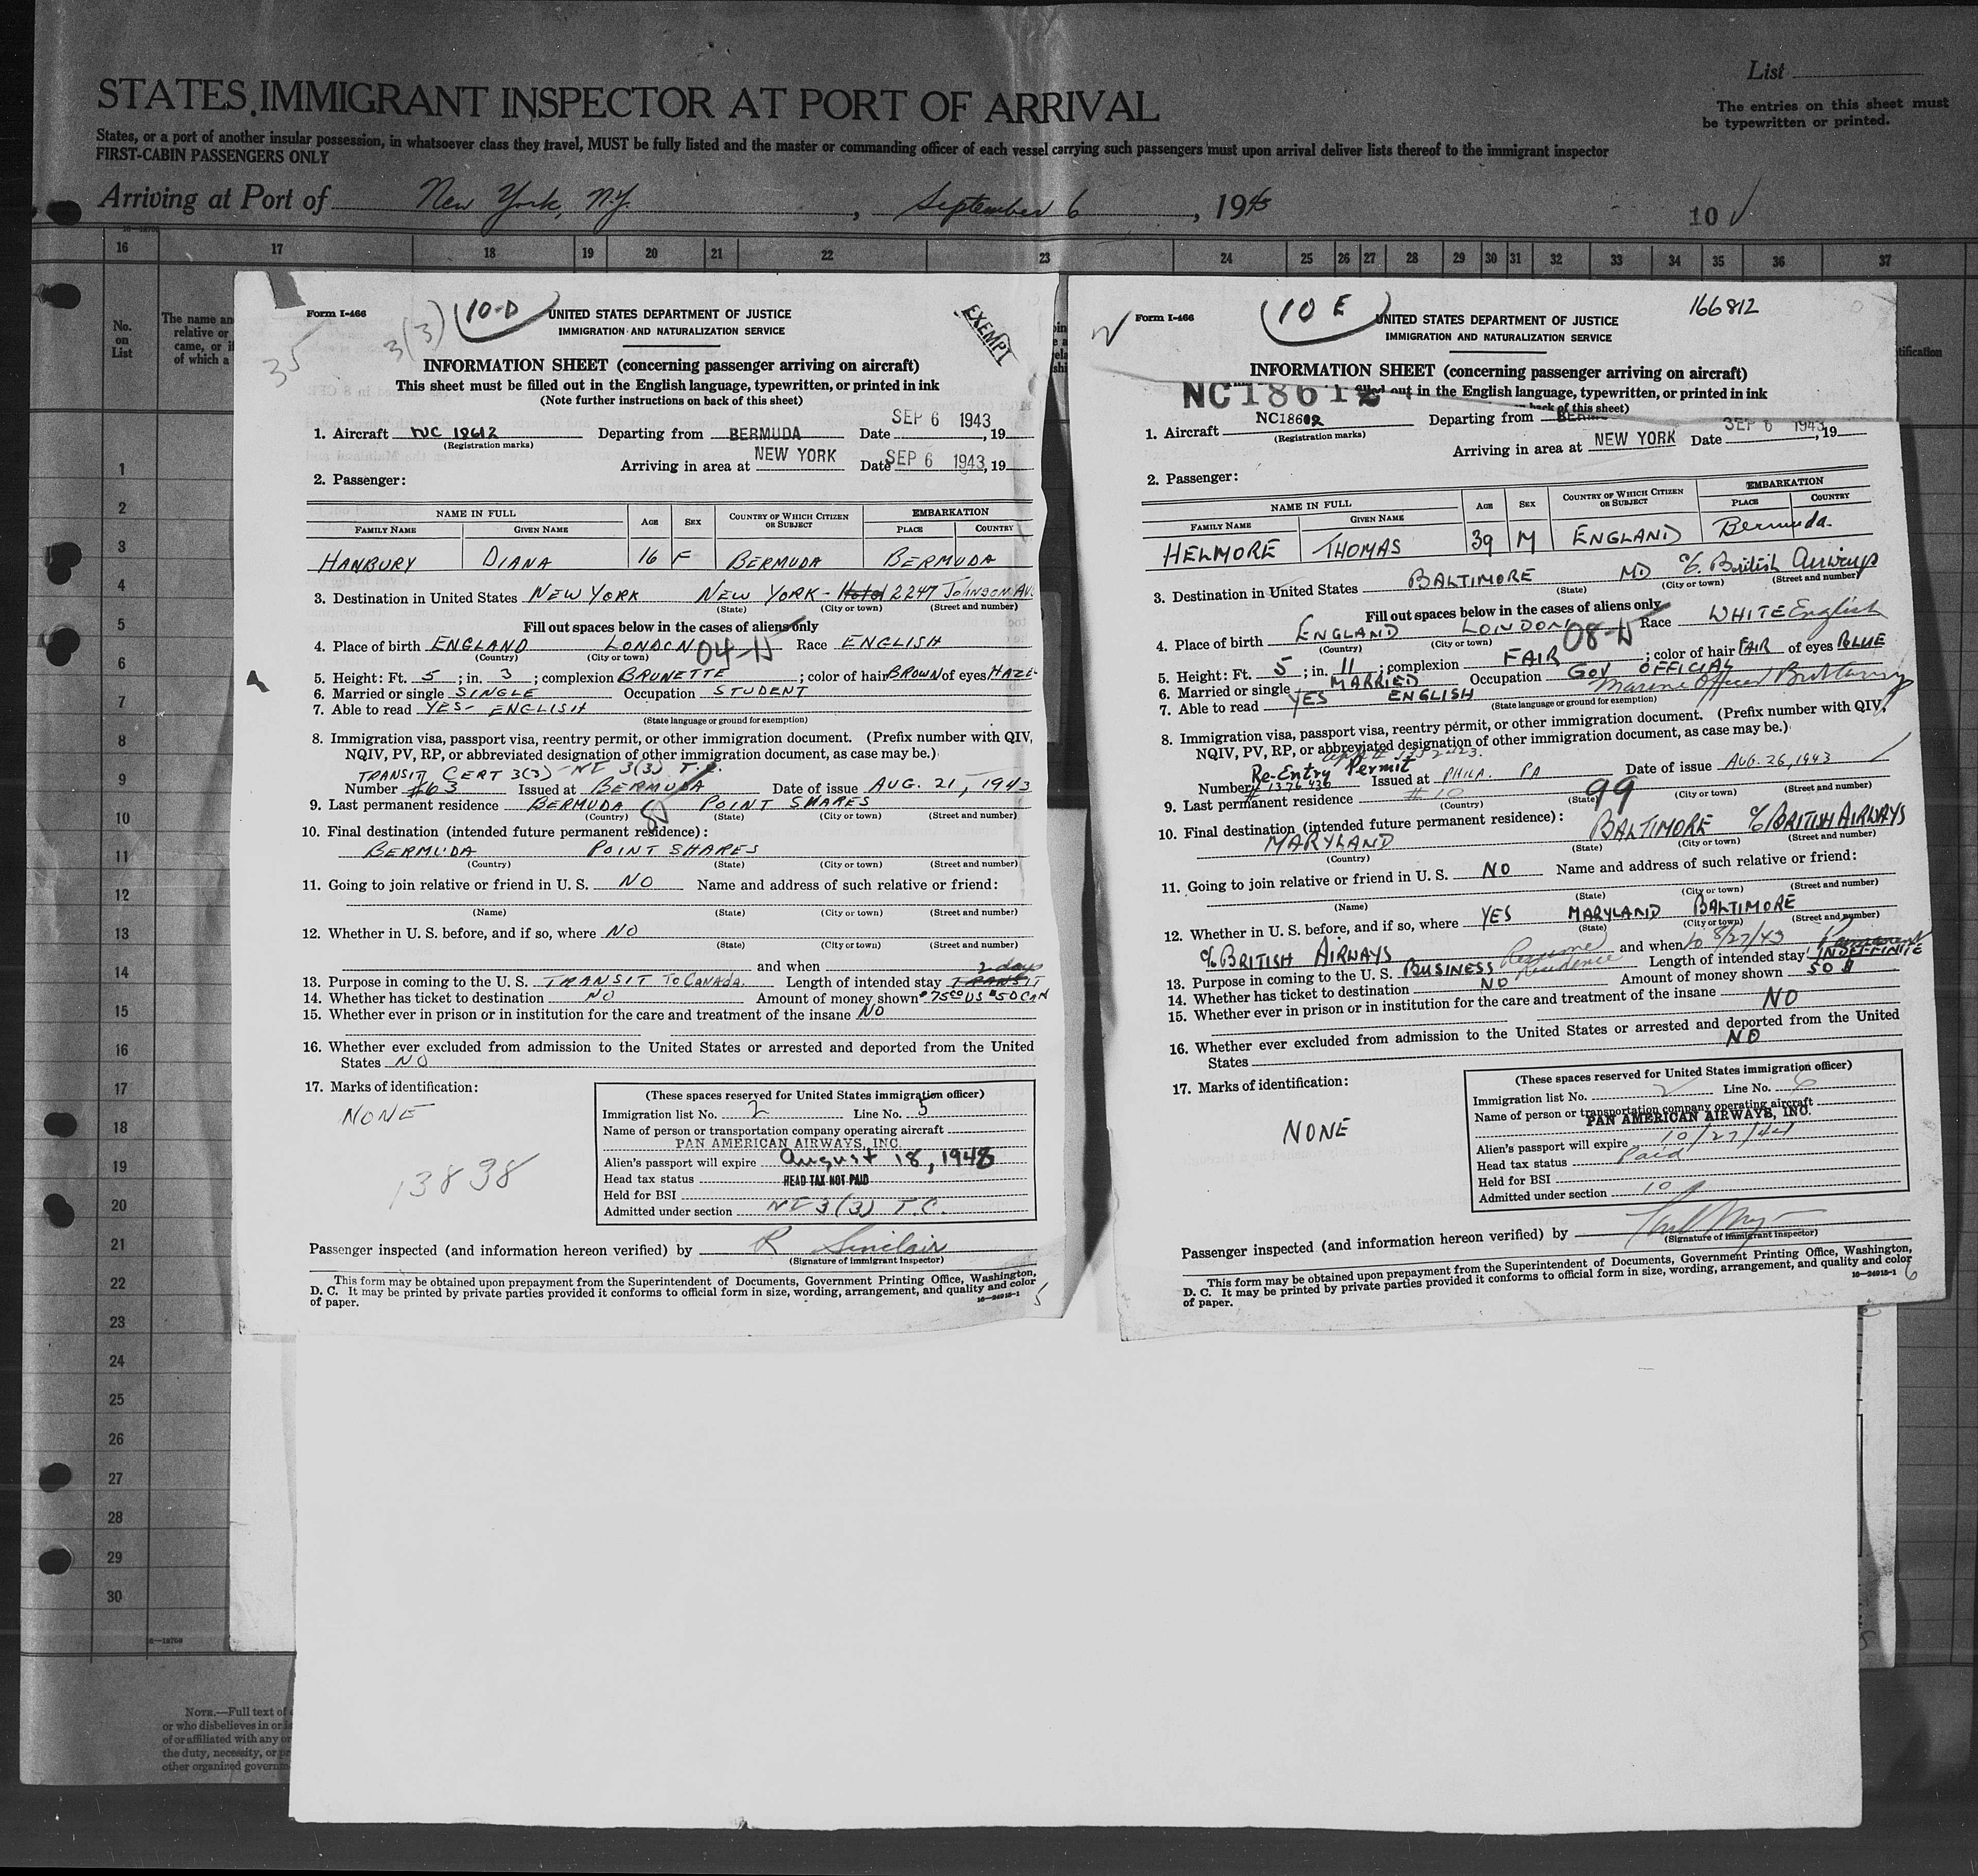 List
STATES IMMIGRANT INSPECTOR AT PORT OF ARRIVAL
The entries on this sheet must
be typewritten or printed.
States, or a port of another insular possession, in whatsoever class they travel, MUST be fully listed and the master or commanding officer of each vessel carrying such passengers must upon arrival deliver lists thereof to the immigrant inspector
FIRST-CABIN PASSENGERS ONLY
Arriving at Port of New York, N.Y., September 6, 1943
10
16 17 18 19 20 21 22 23 24 25 26 27 28 29 30 31 32 33 34 35 36 37
No. on List
The name an
relative or
came, or i
of which a
1
2
3
4
5
6
7
8
9
10
11
12
13
14
15
16
17
18
19
20
21
22
23
24
25
26
27
28
29
30
NOTE.—Full text of
or who disbelieves in or i
of or affiliated with any or
the duty, necessity, or pr
other organized governm
35
3(3)
Form I-466
10-D
UNITED STATES DEPARTMENT OF JUSTICE
IMMIGRATION AND NATURALIZATION SERVICE
EXEMPT
INFORMATION SHEET (concerning passenger arriving on aircraft)
This sheet must be filled out in the English language, typewritten, or printed in ink
(Note further instructions on back of this sheet)
1. Aircraft NC 18612 Departing from BERMUDA Date SEP 6 1943, 19
(Registration marks)
Arriving in area at NEW YORK Date SEP 6 1943, 19
2. Passenger:
NAME IN FULL AGE SEX COUNTRY OF WHICH CITIZEN OR SUBJECT EMBARKATION
FAMILY NAME GIVEN NAME PLACE COUNTRY
HANBURY DIANA 16 F BERMUDA BERMUDA
3. Destination in United States NEW YORK NEW YORK - Hotel 2247 JOHNSON AV
(State) (City or town) (Street and number)
Fill out spaces below in the cases of aliens only
4. Place of birth ENGLAND LONDON 04-N Race ENGLISH
(Country) (City or town)
5. Height: Ft. 5; in. 3; complexion BRUNETTE; color of hair BROWN of eyes HAZE
6. Married or single SINGLE Occupation STUDENT
7. Able to read YES - ENGLISH
(State language or ground for exemption)
8. Immigration visa, passport visa, reentry permit, or other immigration document. (Prefix number with QIV,
NQIV, PV, RP, or abbreviated designation of other immigration document, as case may be.)
TRANSIT CERT 3(3) - NI 3(3) T.C.
Number #63 Issued at BERMUDA Date of issue AUG. 21, 1943
9. Last permanent residence BERMUDA POINT SHARES
(Country) (State) (City or town) (Street and number)
10. Final destination (intended future permanent residence):
BERMUDA POINT SHARES
(Country) (State) (City or town) (Street and number)
11. Going to join relative or friend in U. S. NO Name and address of such relative or friend:
(Name) (State) (City or town) (Street and number)
12. Whether in U. S. before, and if so, where NO
(State) (City or town) (Street and number)
and when 2 days
13. Purpose in coming to the U. S. TRANSIT TO CANADA. Length of intended stay TRANSIT
14. Whether has ticket to destination NO Amount of money shown $75.00 US $50 CAN
15. Whether ever in prison or in institution for the care and treatment of the insane NO
16. Whether ever excluded from admission to the United States or arrested and deported from the United
States NO
17. Marks of identification:
NONE
13838
(These spaces reserved for United States immigration officer)
Immigration list No. 2 Line No. 5
Name of person or transportation company operating aircraft
PAN AMERICAN AIRWAYS, INC.
Alien's passport will expire August 18, 1948
Head tax status HEAD TAX NOT PAID
Held for BSI
Admitted under section NI 3(3) T.C.
Passenger inspected (and information hereon verified) by R Sinclair
(Signature of Immigrant Inspector)
This form may be obtained upon prepayment from the Superintendent of Documents, Government Printing Office, Washington,
D. C. It may be printed by private parties provided it conforms to official form in size, wording, arrangement, and quality and color
of paper.
16-24915-1
5
Form I-466
10 E
166812
UNITED STATES DEPARTMENT OF JUSTICE
IMMIGRATION AND NATURALIZATION SERVICE
INFORMATION SHEET (concerning passenger arriving on aircraft)
NC18612 filled out in the English language, typewritten, or printed in ink
back of this sheet)
1. Aircraft NC18602 Departing from Date SEP 6 1943, 19
(Registration marks)
Arriving in area at NEW YORK Date
2. Passenger:
NAME IN FULL AGE SEX COUNTRY OF WHICH CITIZEN OR SUBJECT EMBARKATION
FAMILY NAME GIVEN NAME PLACE COUNTRY
HELMORE THOMAS 39 M ENGLAND Bermuda
3. Destination in United States BALTIMORE MD % British Airways
(State) (City or town) (Street and number)
Fill out spaces below in the cases of aliens only
4. Place of birth ENGLAND LONDON 08-N Race WHITE English
(Country) (City or town)
5. Height: Ft. 5; in. 11; complexion FAIR; color of hair FAIR of eyes BLUE
6. Married or single MARRIED Occupation GOV OFFICIAL
7. Able to read YES ENGLISH Marine Officer
(State language or ground for exemption)
8. Immigration visa, passport visa, reentry permit, or other immigration document. (Prefix number with QIV,
NQIV, PV, RP, or abbreviated designation of other immigration document, as case may be.)
Re-Entry Permit
Number # 1376436 Issued at PHILA. PA Date of issue AUG. 26, 1943
9. Last permanent residence #10 99
(Country) (State) (City or town) (Street and number)
10. Final destination (intended future permanent residence):
MARYLAND BALTIMORE % BRITISH AIRWAYS
(Country) (State) (City or town) (Street and number)
11. Going to join relative or friend in U. S. NO Name and address of such relative or friend:
(Name) (State) (City or town) (Street and number)
12. Whether in U. S. before, and if so, where YES MARYLAND BALTIMORE
(State) (City or town) (Street and number)
% BRITISH AIRWAYS and when to 8/27/43
13. Purpose in coming to the U. S. BUSINESS Resume Residence Length of intended stay Permanent INDEFFINITE
14. Whether has ticket to destination NO Amount of money shown 50 $
15. Whether ever in prison or in institution for the care and treatment of the insane NO
16. Whether ever excluded from admission to the United States or arrested and deported from the United
States NO
17. Marks of identification:
NONE
(These spaces reserved for United States immigration officer)
Immigration list No. 2 Line No. 6
Name of person or transportation company operating aircraft
PAN AMERICAN AIRWAYS, INC.
Alien's passport will expire 10/27/44
Head tax status Paid
Held for BSI
Admitted under section 10
Passenger inspected (and information hereon verified) by
(Signature of Immigrant Inspector)
This form may be obtained upon prepayment from the Superintendent of Documents, Government Printing Office, Washington,
D. C. It may be printed by private parties provided it conforms to official form in size, wording, arrangement, and quality and color
of paper.
16-24915-1
6